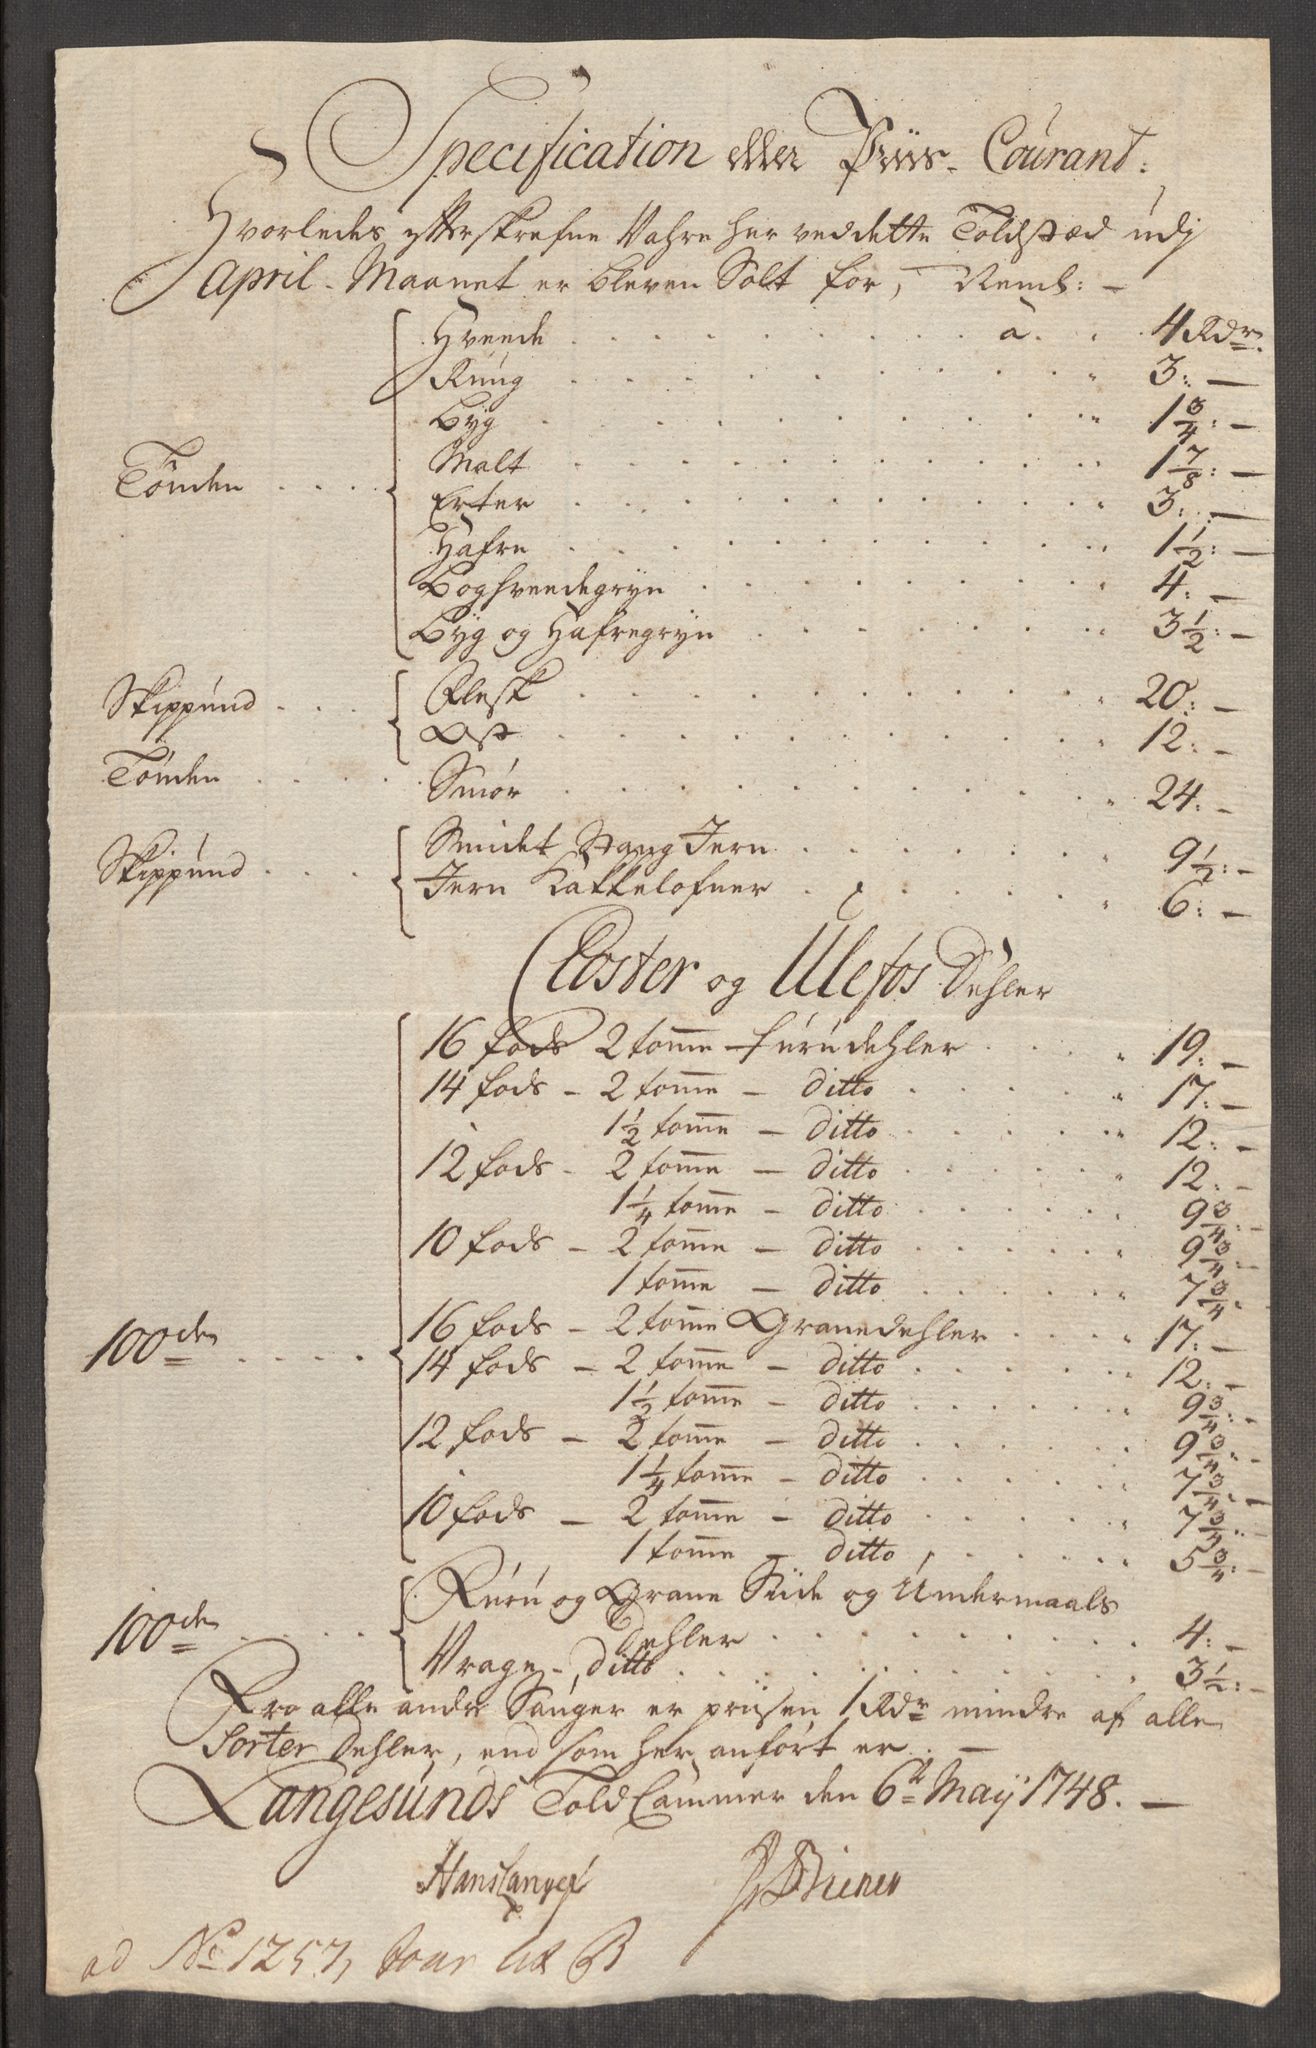 Specification eller Priis-Courant:
Hvorledes efterskrefne Vahre her ved dette Toldsted udj
April-Maanet er bleven Solt for, Neml: -
Tönden . . . Hvede . . . a . . 4 Rdr.
Rúng . . . 3: -
Byg . . . 1 3/4: -
Malt . . . 1 7/8: -
Erter . . . 3: -
Hafre . . . 1 1/2: -
Boghvedegryn . . . 4: -
Byg og Hafregryn . . . 3 1/2: -
Skippund . . . Flesk . . . 20: -
Ost . . . 12: -
Tönden . . . Smör . . . 24: -
Skippúnd . . . Smidet Stang Jern . . . 9 1/2: -
Jern Kakkelofner . . . 6: -
Closter og Ulefos Dehler
16 fods 2 tomme fúrúdehler . . . 19: -
14 fods - 2 tomme - ditto . . . 17: -
1 1/2 tomme - ditto . . . 12: -
12 fods - 2 tomme - ditto . . . 12: -
1 1/4 tomme - ditto . . . 9 3/4: -
10 fods - 2 tomme - ditto . . . 9 3/4: -
1 tomme - ditto . . . 7 3/4: -
100de . . . 16 fods - 2 tomme Granedehler . . . 17: -
14 fods - 2 tomme - ditto . . . 12: -
1 1/2 tomme - ditto . . . 9 3/4: -
12 fods - 2 tomme - ditto . . . 9 3/4: -
1 1/4 tomme - ditto . . . 7 3/4: -
10 fods - 2 tomme - ditto . . . 7 3/4: -
1 tomme - ditto . . . 5 3/4: -
100de . . . Fúrú og Grane Siide og Undermaals
Dehler . . . 4: -
Vrage - ditto . . . 3 1/2: -
Fra alle andre Sauger er priisen 1 Rdr mindre af alle
Sorter Dehler, end som her anfört er. -
Langesúnds Told Cammer den 6te Maij 1748. -
ad No 1257,